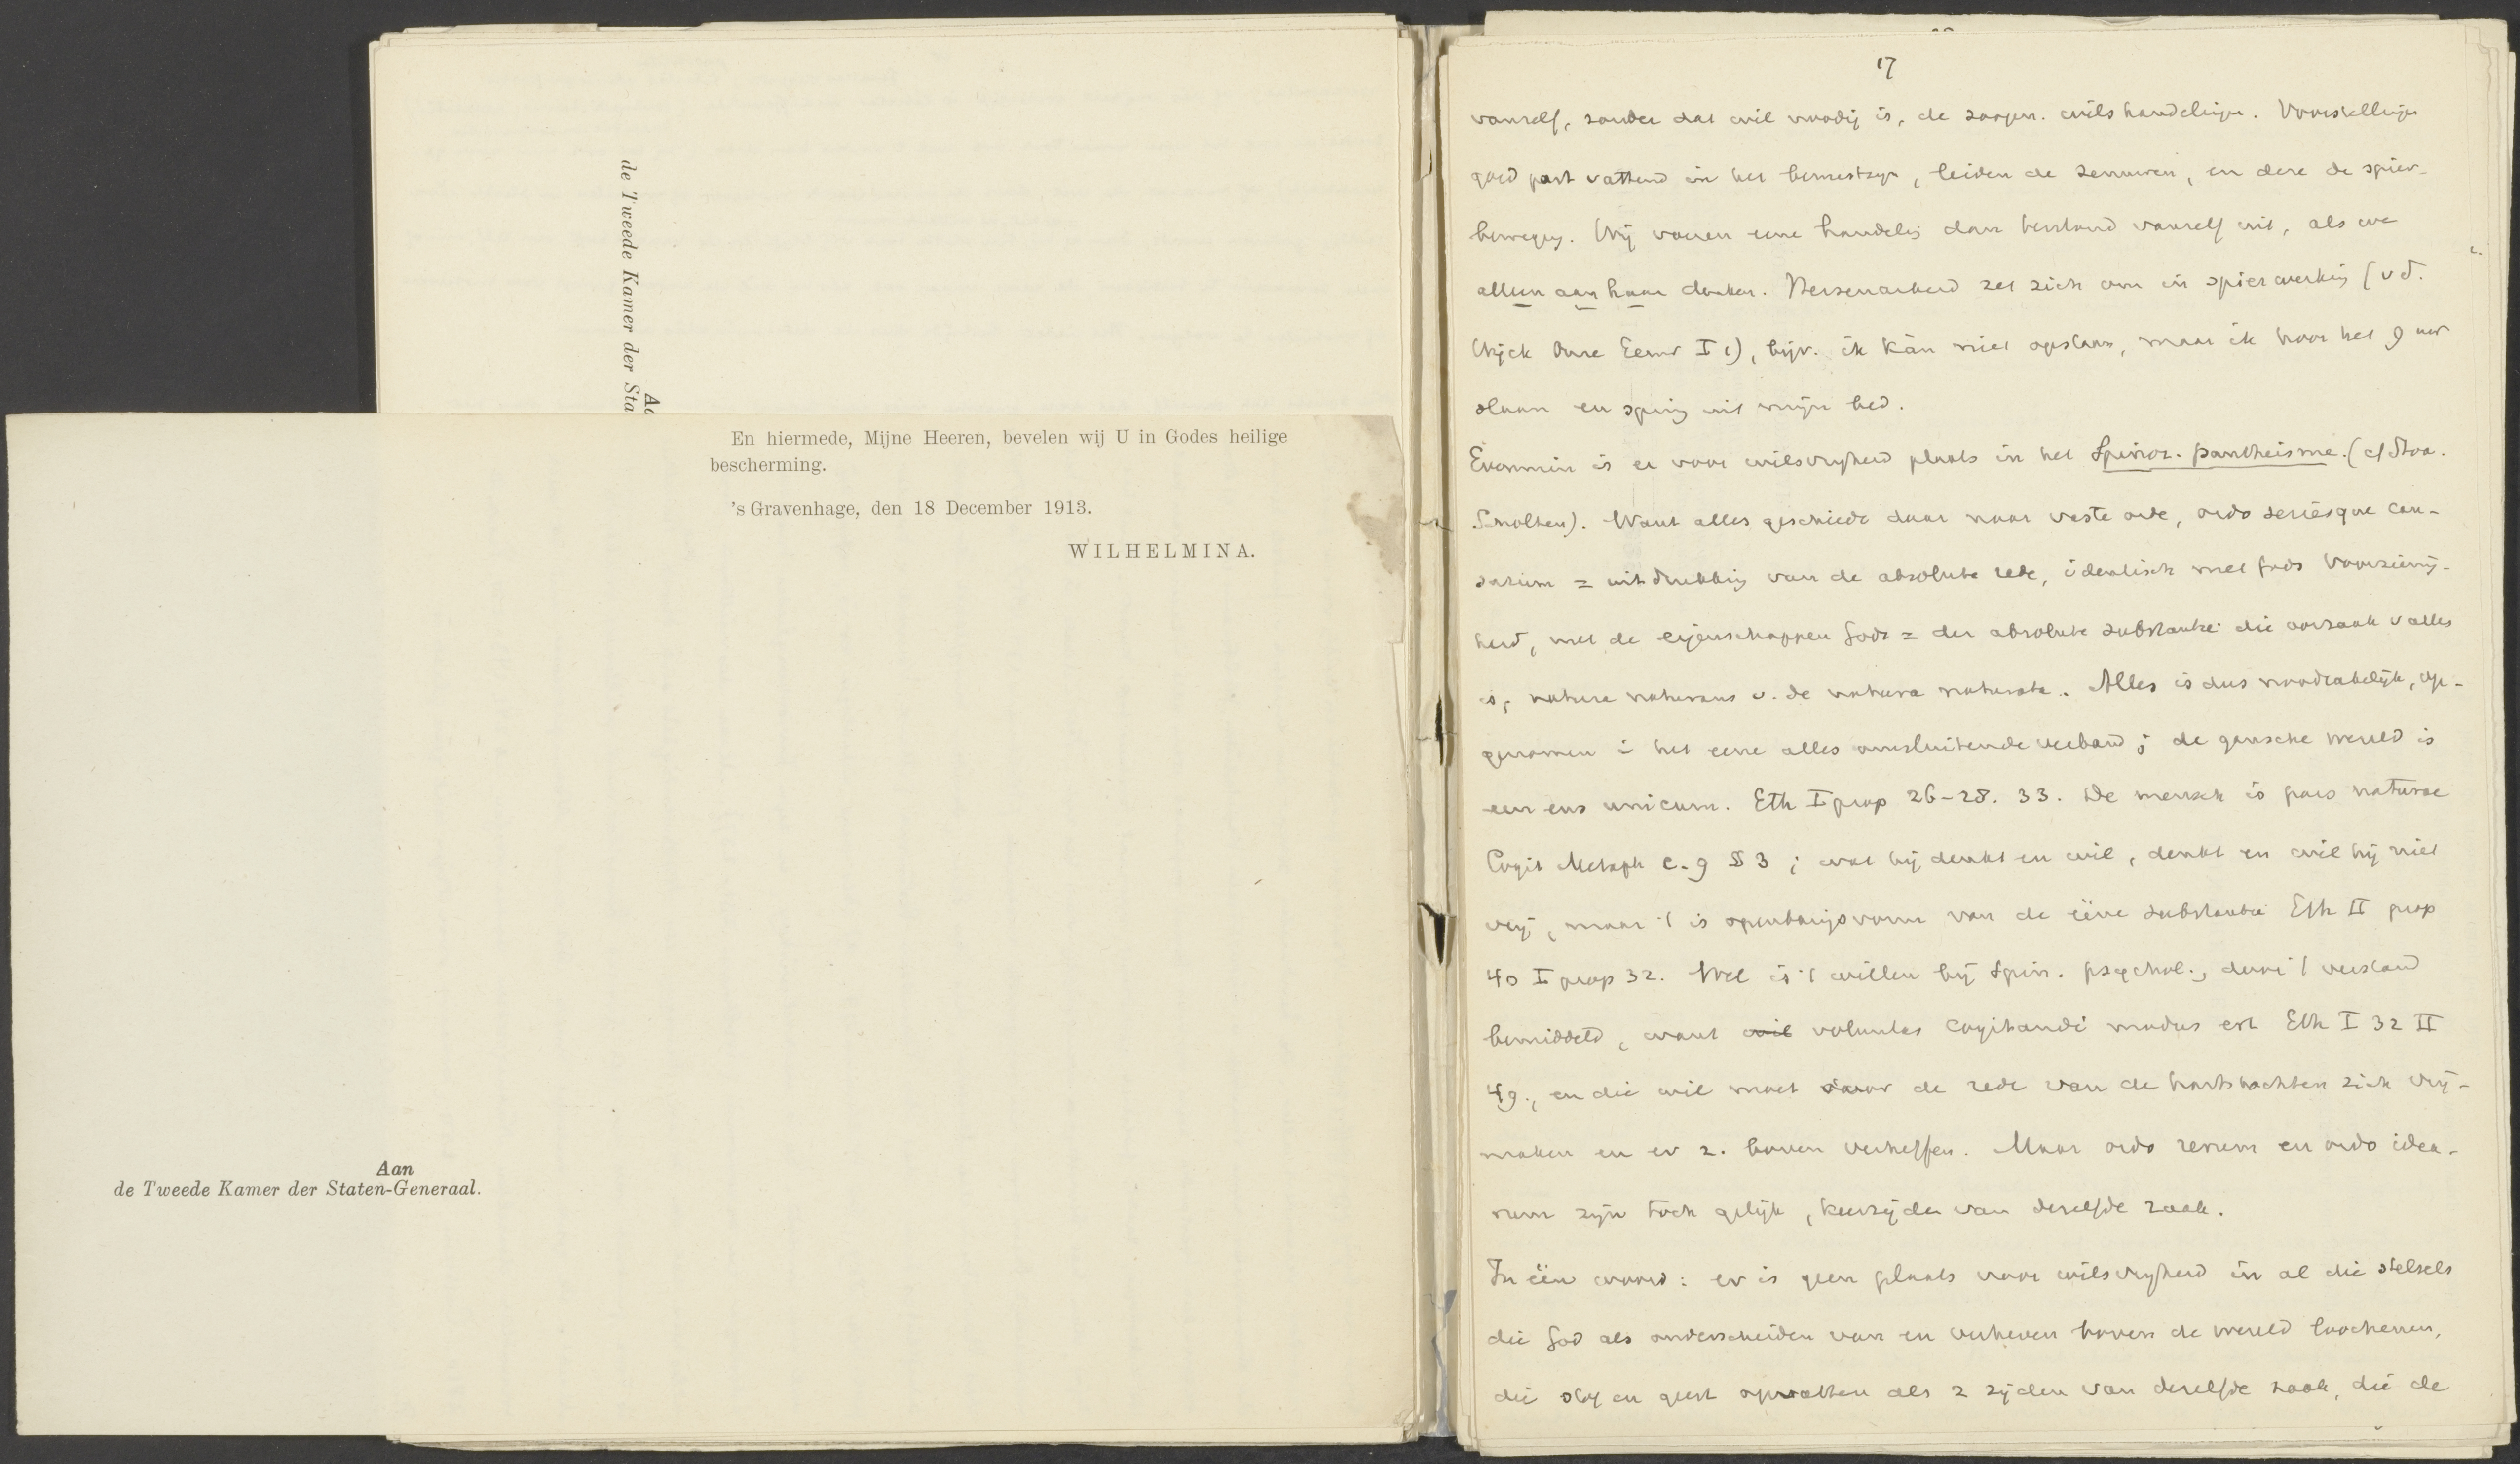 de Tweede Kamer der Sta
Aa
En hiermede, Mijne Heeren, bevelen wij U in Godes heilige
bescherming.
's Gravenhage, den 18 December 1913.
WILHELMINA.
Aan
de Tweede Kamer der Staten-Generaal.
17
vanzelf, zonder dat wil noodig is, de zoogen. wilshandelingen. Voorstellingen
goed post vattend in het bewustzijn, leiden de zenuwen, en deze de spier-
beweging. Wij voeren eene handeling dan bestand vanzelf uit, als we
alleen aan haar denken. Hersenarbeid zet zich om in spierwerking (v d.
Wijck Onze Eeuw I 1), bijv. ik kàn niet opstaan, maar ik hoor het 9 uur
slaan en spring uit mijn bed.
Evenmin is er voor wilsvrijheid plaats in het Spinoz. pantheisme. (cf Stoa.
Scholten). Want alles geschiedt daar naar vaste orde, ordo seriesque cau-
sarum = uitdrukking van de absolute rede, identisch met Gods Voorzienig-
heid, met de eigenschappen Gods = der absolute substantie die oorzaak v alles
is, natura naturans v. de natura naturata. Alles is dus noodzakelijk, op-
genomen i het eene alles omsluitende verband; de gansche wereld is
een ens unicum. Eth I prop 26-28. 33. De mensch is pars naturae
Cogit Metaph c. 9 § 3; wat hij denkt en wil, denkt en wil hij niet
vrij, maar 't is openbaringsvorm van de ééne substantie Eth II prop
48 I prop 32. Wel is 't willen bij Spin. psychol., door 't verstand
bemiddeld, want wil voluntas cogitandi modus est Eth I 32 II
49., en die wil moet door de rede van de hartstochten zich vrij-
maken en er z. boven verheffen. Maar ordo rerum en ordo idea-
rum zijn toch gelijk, keerzijden van dezelfde zaak.
In één woord: er is geen plaats voor wilsvrijheid in al die stelsels
die God als onderscheiden van en verheven boven de wereld loochenen,
die stof en geest opvatten als 2 zijden van dezelfde zaak, die de